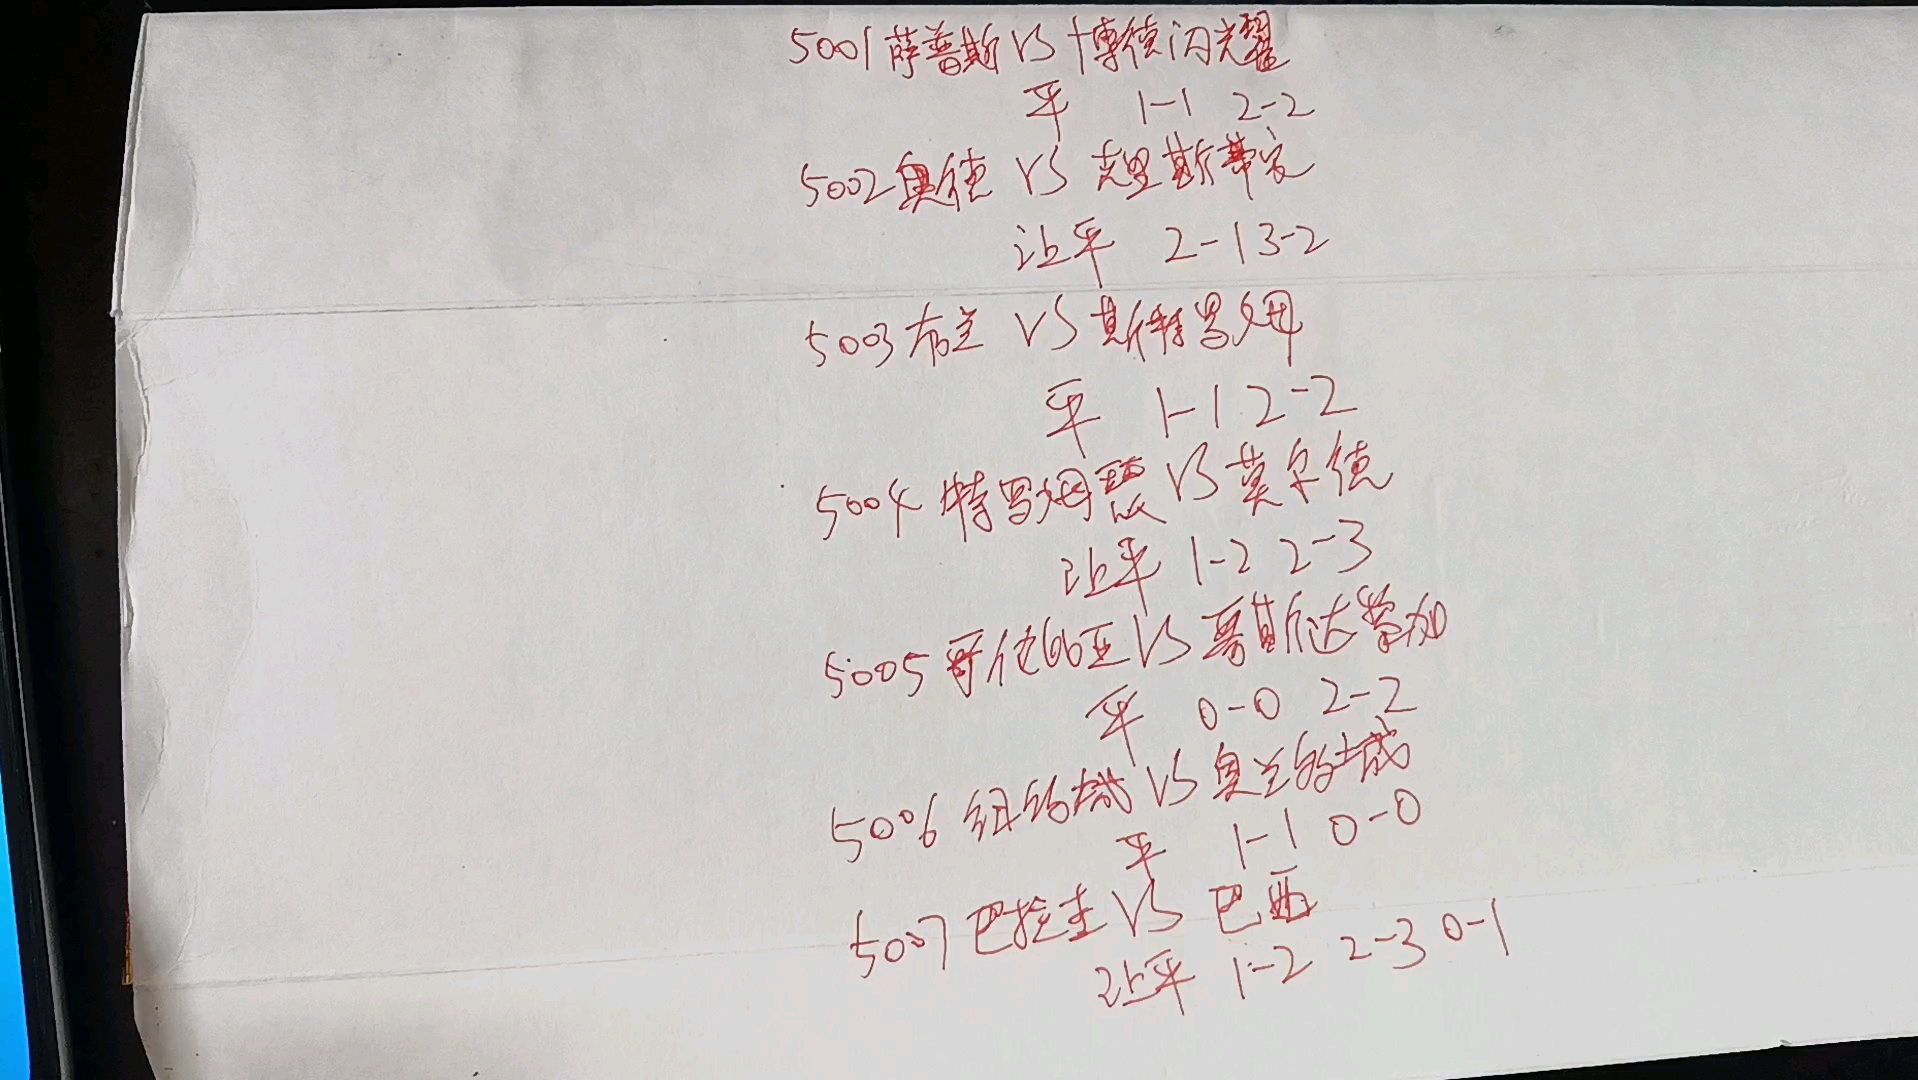 5001 萨普斯 VS 博德闪光耀
平 1-1 2-2
5002 奥德 VS 克里斯蒂安
让平 2-1 3-2
5003 布兰 VS 斯特罗姆
平 1-1 2-2
5004 特罗姆瑟 VS 莫尔德
让平 1-2 2-3
5005 哥伦比亚 VS 哥斯达黎加
平 0-0 2-2
5006 纽约城 VS 奥兰多城
平 1-1 0-0
5007 巴拉圭 VS 巴西
让平 1-2 2-3 0-1